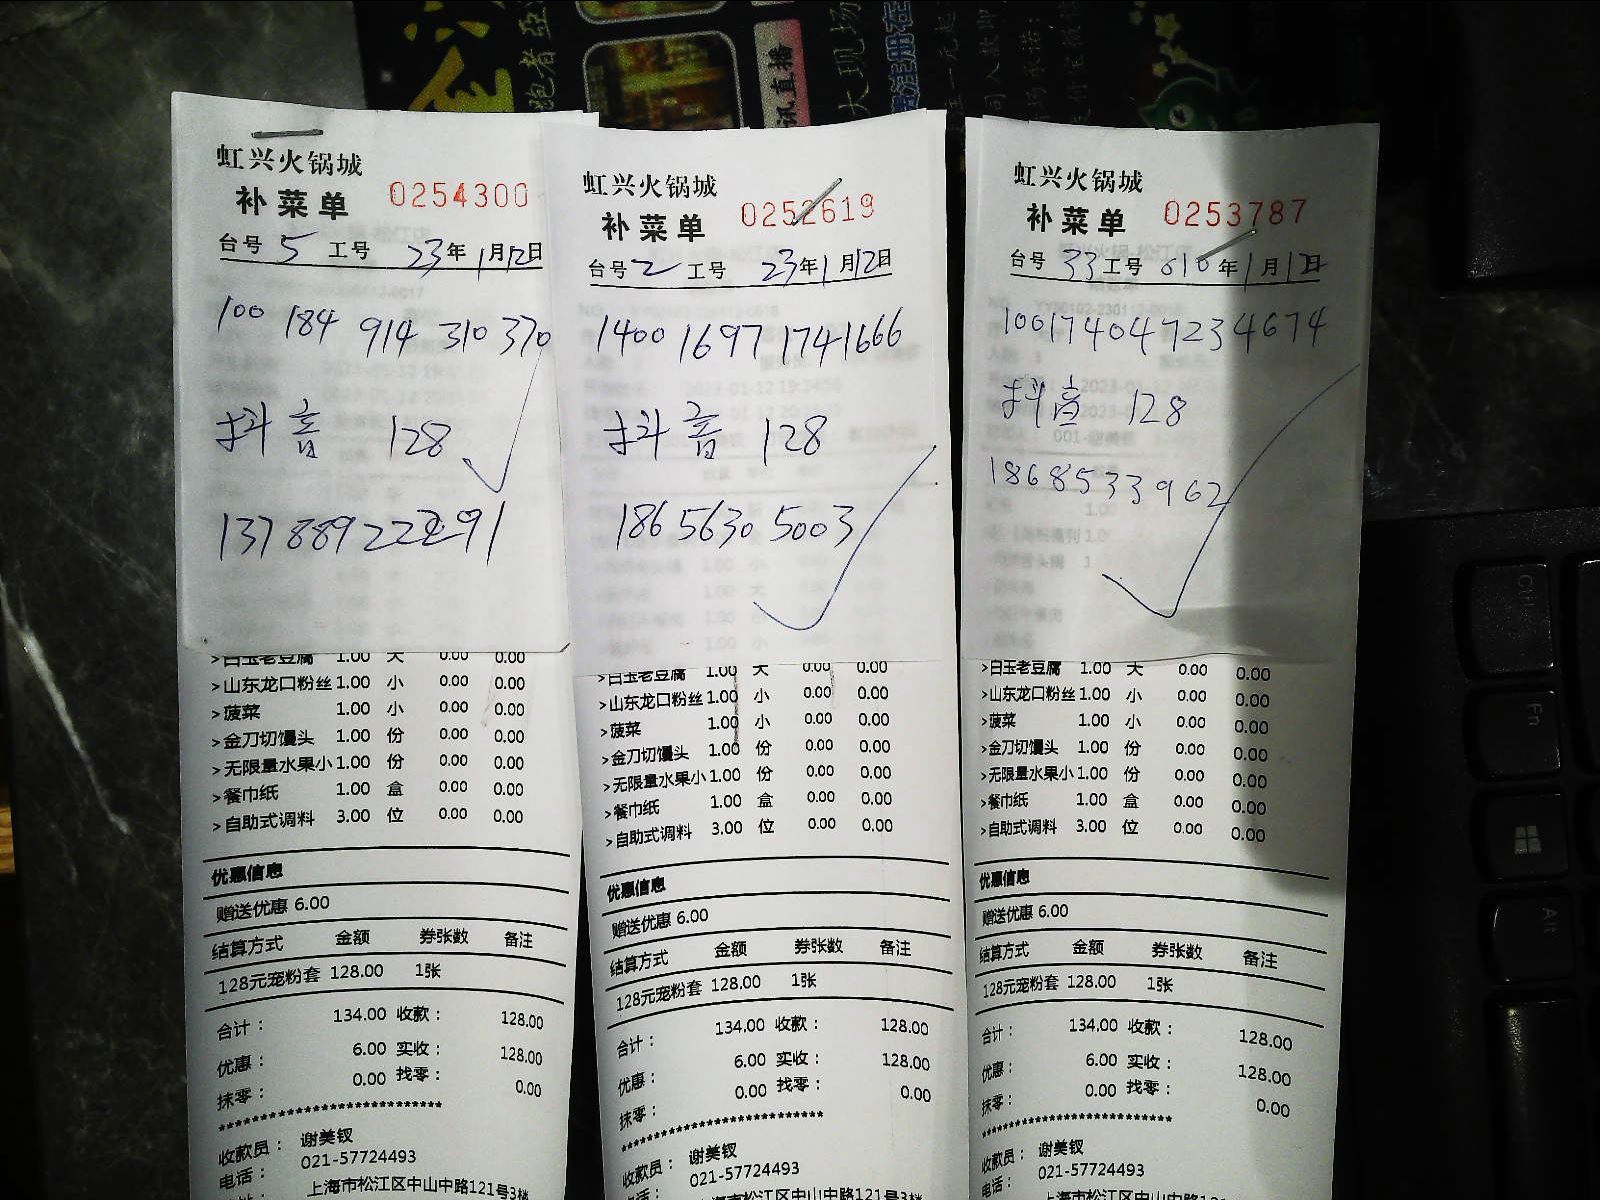 跑者亞
讯直播
大现场
费注册在
虹兴火锅城
补菜单 0254300
台号 5 工号 23年1月12日
100 184 914 310 370
抖音 128
13788922291
>白玉老豆腐 1.00 大 0.00 0.00
>山东龙口粉丝 1.00 小 0.00 0.00
>菠菜 1.00 小 0.00 0.00
>金刀切馒头 1.00 份 0.00 0.00
>无限量水果小 1.00 份 0.00 0.00
>餐巾纸 1.00 盒 0.00 0.00
>自助式调料 3.00 位 0.00 0.00
优惠信息
赠送优惠 6.00
结算方式 金额 券张数 备注
128元宠粉套 128.00 1张
合计： 134.00 收款： 128.00
优惠： 6.00 实收： 128.00
抹零： 0.00 找零： 0.00
收款员： 谢美钗
电话： 021-57724493
上海市松江区中山中路121号3楼
虹兴火锅城
补菜单 0252619
台号 2 工号 23年1月12日
1400 1697 1741666
抖音 128
18656305003
>白玉老豆腐 1.00 大 0.00 0.00
>山东龙口粉丝 1.00 小 0.00 0.00
>菠菜 1.00 小 0.00 0.00
>金刀切馒头 1.00 份 0.00 0.00
>无限量水果小 1.00 份 0.00 0.00
>餐巾纸 1.00 盒 0.00 0.00
>自助式调料 3.00 位 0.00 0.00
优惠信息
赠送优惠 6.00
结算方式 金额 券张数 备注
128元宠粉套 128.00 1张
合计： 134.00 收款： 128.00
优惠： 6.00 实收： 128.00
抹零： 0.00 找零： 0.00
收款员： 谢美钗
电话： 021-57724493
上海市松江区中山中路121号3楼
虹兴火锅城
补菜单 0253787
台号 33 工号 010 年1月12日
100174047234674
抖音 128
18685333962
>白玉老豆腐 1.00 大 0.00 0.00
>山东龙口粉丝 1.00 小 0.00 0.00
>菠菜 1.00 小 0.00 0.00
>金刀切馒头 1.00 份 0.00 0.00
>无限量水果小 1.00 份 0.00 0.00
>餐巾纸 1.00 盒 0.00 0.00
>自助式调料 3.00 位 0.00 0.00
优惠信息
赠送优惠 6.00
结算方式 金额 券张数 备注
128元宠粉套 128.00 1张
合计： 134.00 收款： 128.00
优惠： 6.00 实收： 128.00
抹零： 0.00 找零： 0.00
收款员： 谢美钗
电话： 021-57724493
上海市松江区中山中路121号3楼
Ctrl
Fn
Alt